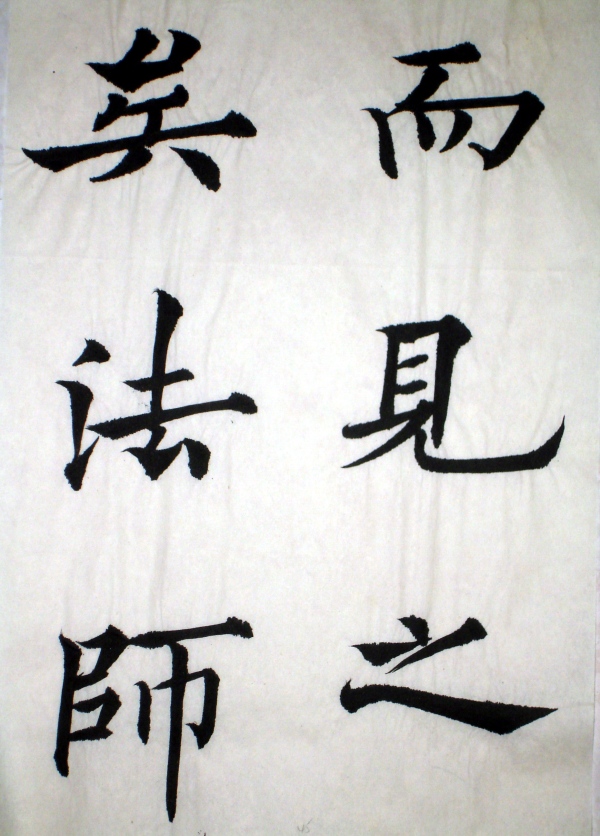 而見之
矣法師